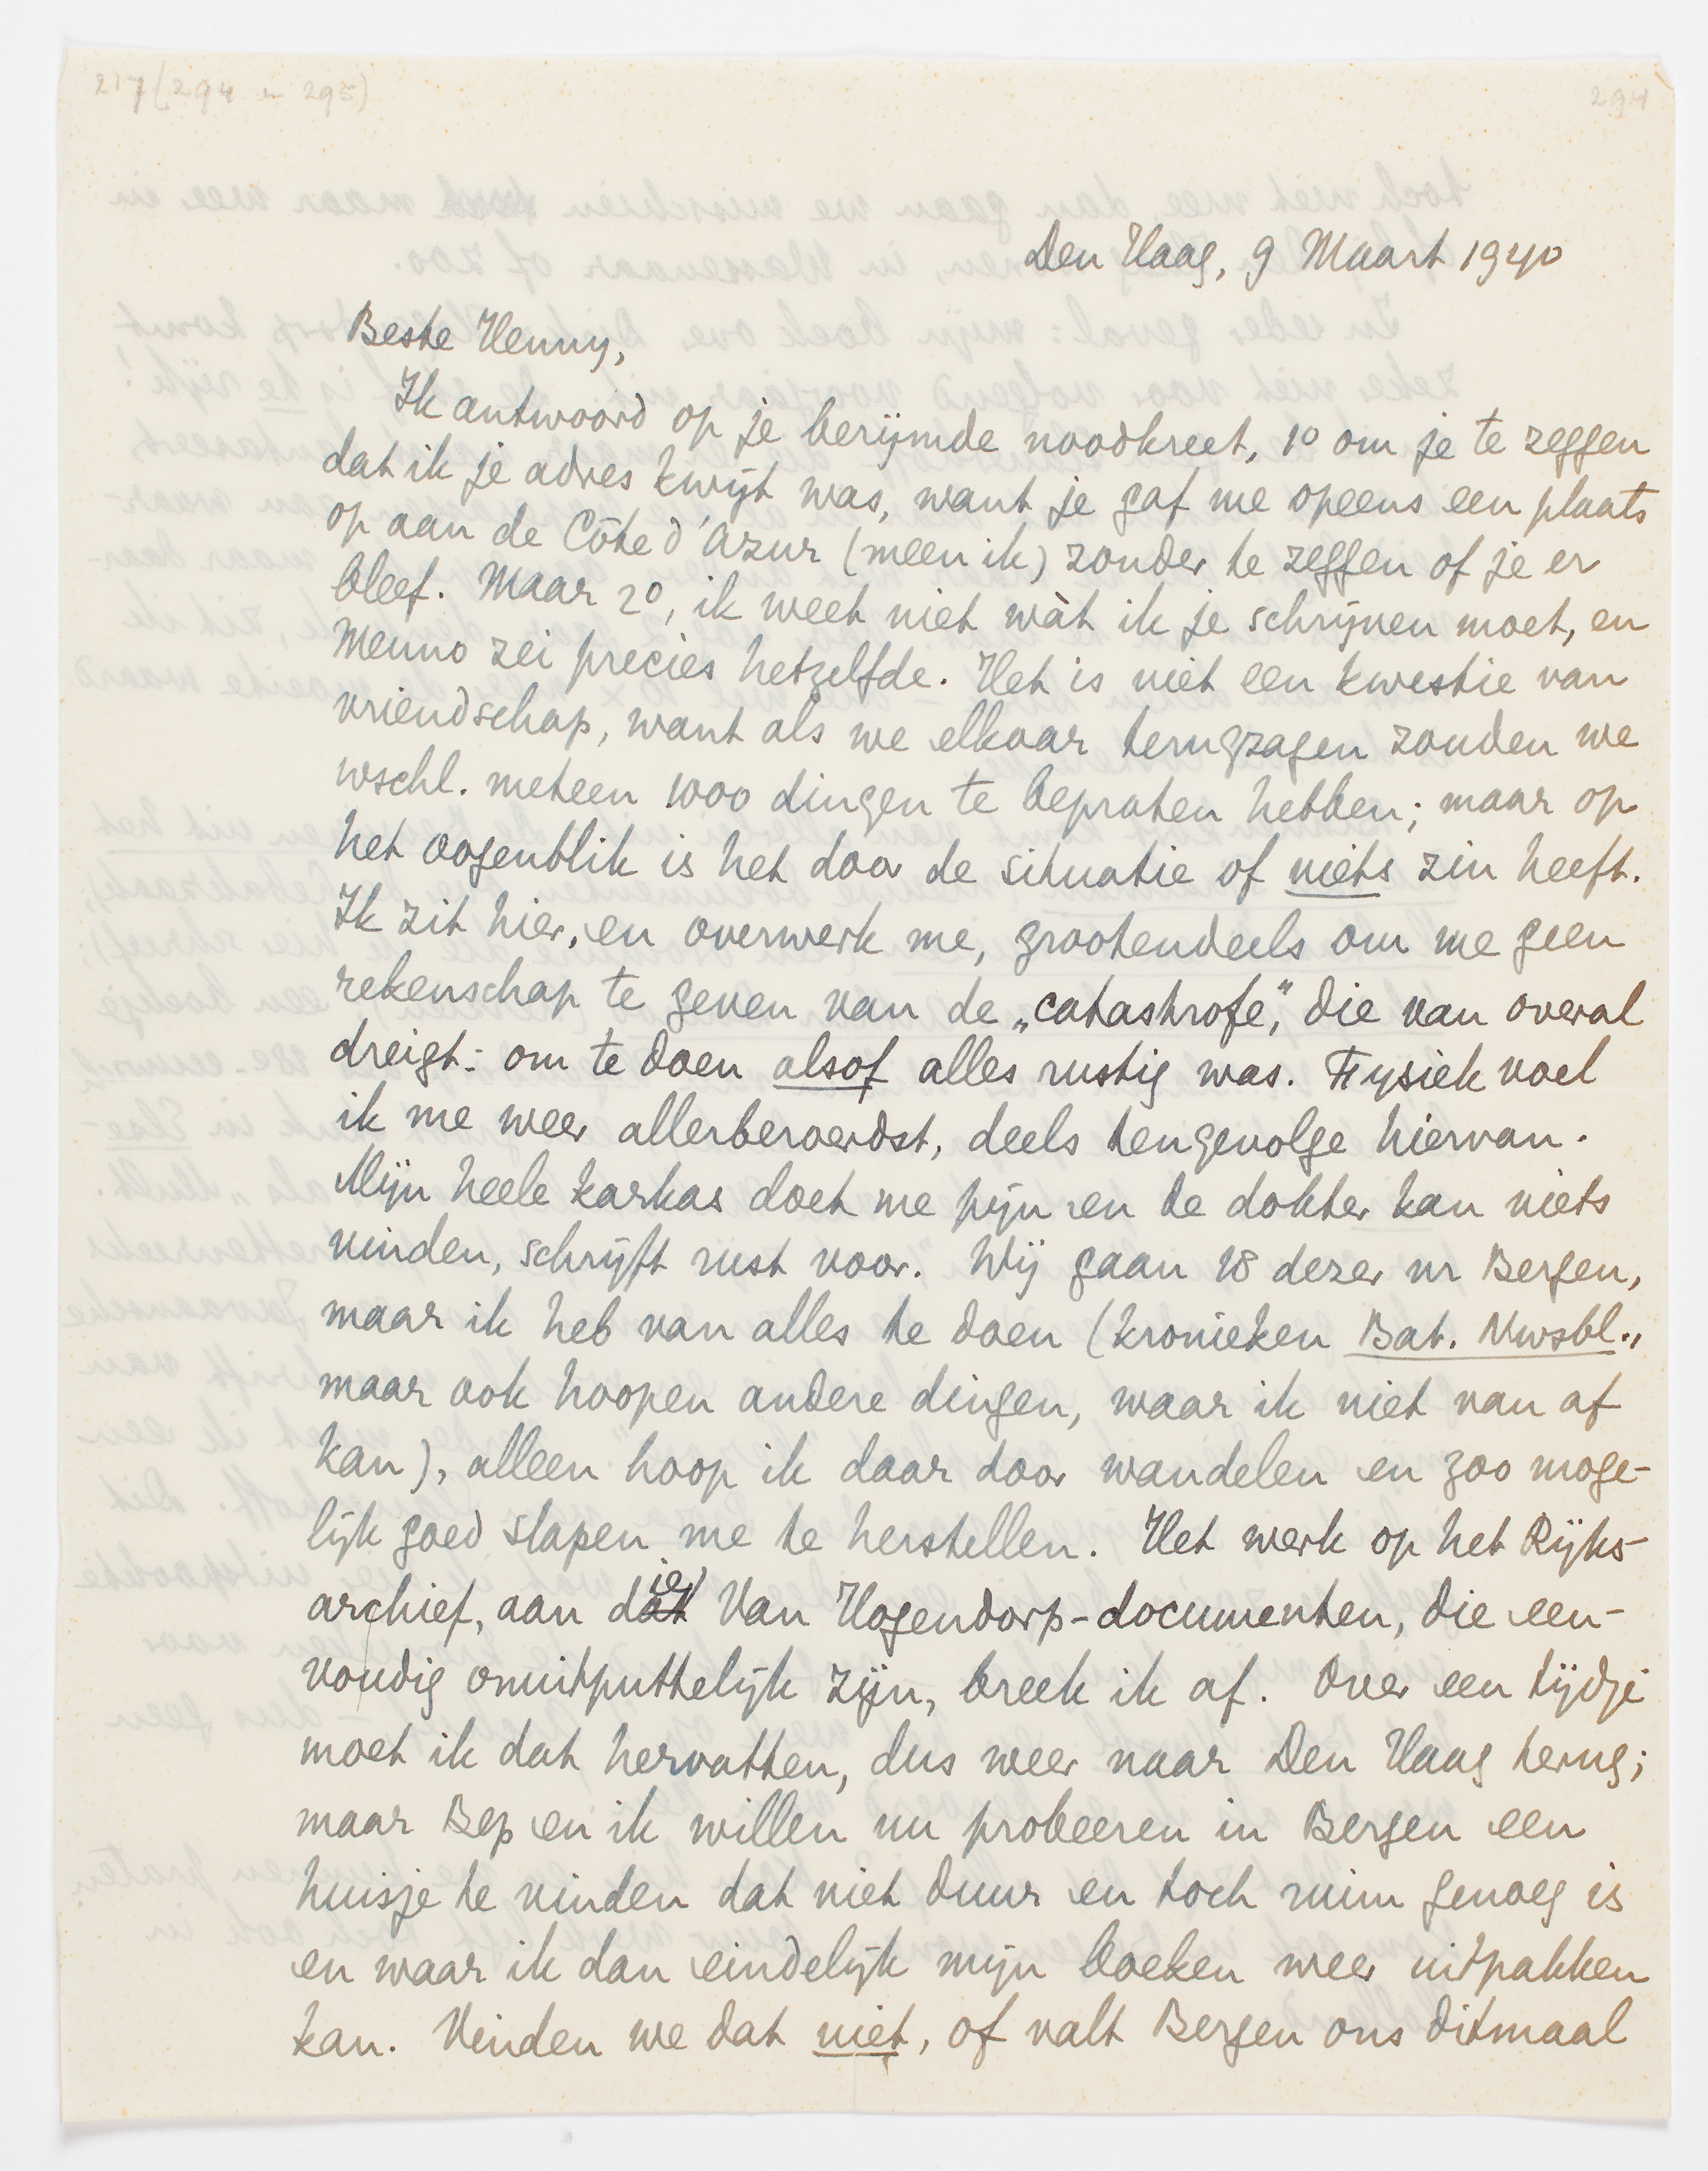 217 (294 en 295)
294
Den Haag, 9 Maart 1940
Beste Henny,
Ik antwoord op je berijmde noodkreet, 1º om je te zeggen
dat ik je adres kwijt was, want je gaf me opeens een plaats
op aan de Côte d'Azur (meen ik) zonder te zeggen of je er
bleef. Maar 2º, ik weet niet wàt ik je schrijven moet, en
Menno zei precies hetzelfde. Het is niet een kwestie van
vriendschap, want als we elkaar terugzagen zouden we
wschl. meteen 1000 dingen te bepraten hebben; maar op
het oogenblik is het door de situatie of niets zin heeft.
Ik zit hier, en overwerk me, grootendeels om me geen
rekenschap te geven van de „catastrofe", die van overal
dreigt: om te doen alsof alles rustig was. Fysiek voel
ik me weer allerberoerdst, deels tengevolge hiervan.
Mijn heele karkas doet me pijn en de dokter kan niets
vinden, schrijft rust voor. Wij gaan 18 dezer nr Bergen,
maar ik heb van alles te doen (kronieken Bat. Nwsbl.,
maar ook hoopen andere dingen, waar ik niet van af
kan), alleen hoop ik daar door wandelen en zoo moge-
lijk goed slapen me te herstellen. Het werk op het Rijks-
archief, aan die Van Hogendorp-documenten, die een-
voudig onuitputtelijk zijn, breek ik af. Over een tijdje
moet ik dat hervatten, dus weer naar Den Haag terug;
maar Bep en ik willen nu probeeren in Bergen een
huisje te vinden dat niet duur en toch ruim genoeg is
en waar ik dan eindelijk mijn boeken weer uitpakken
kan. Vinden we dat niet, of valt Bergen ons ditmaal